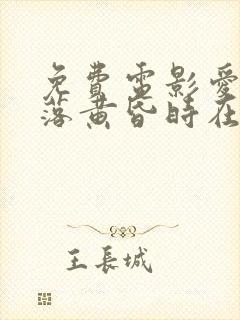 免費電影愛
落黃昏時在
王長城